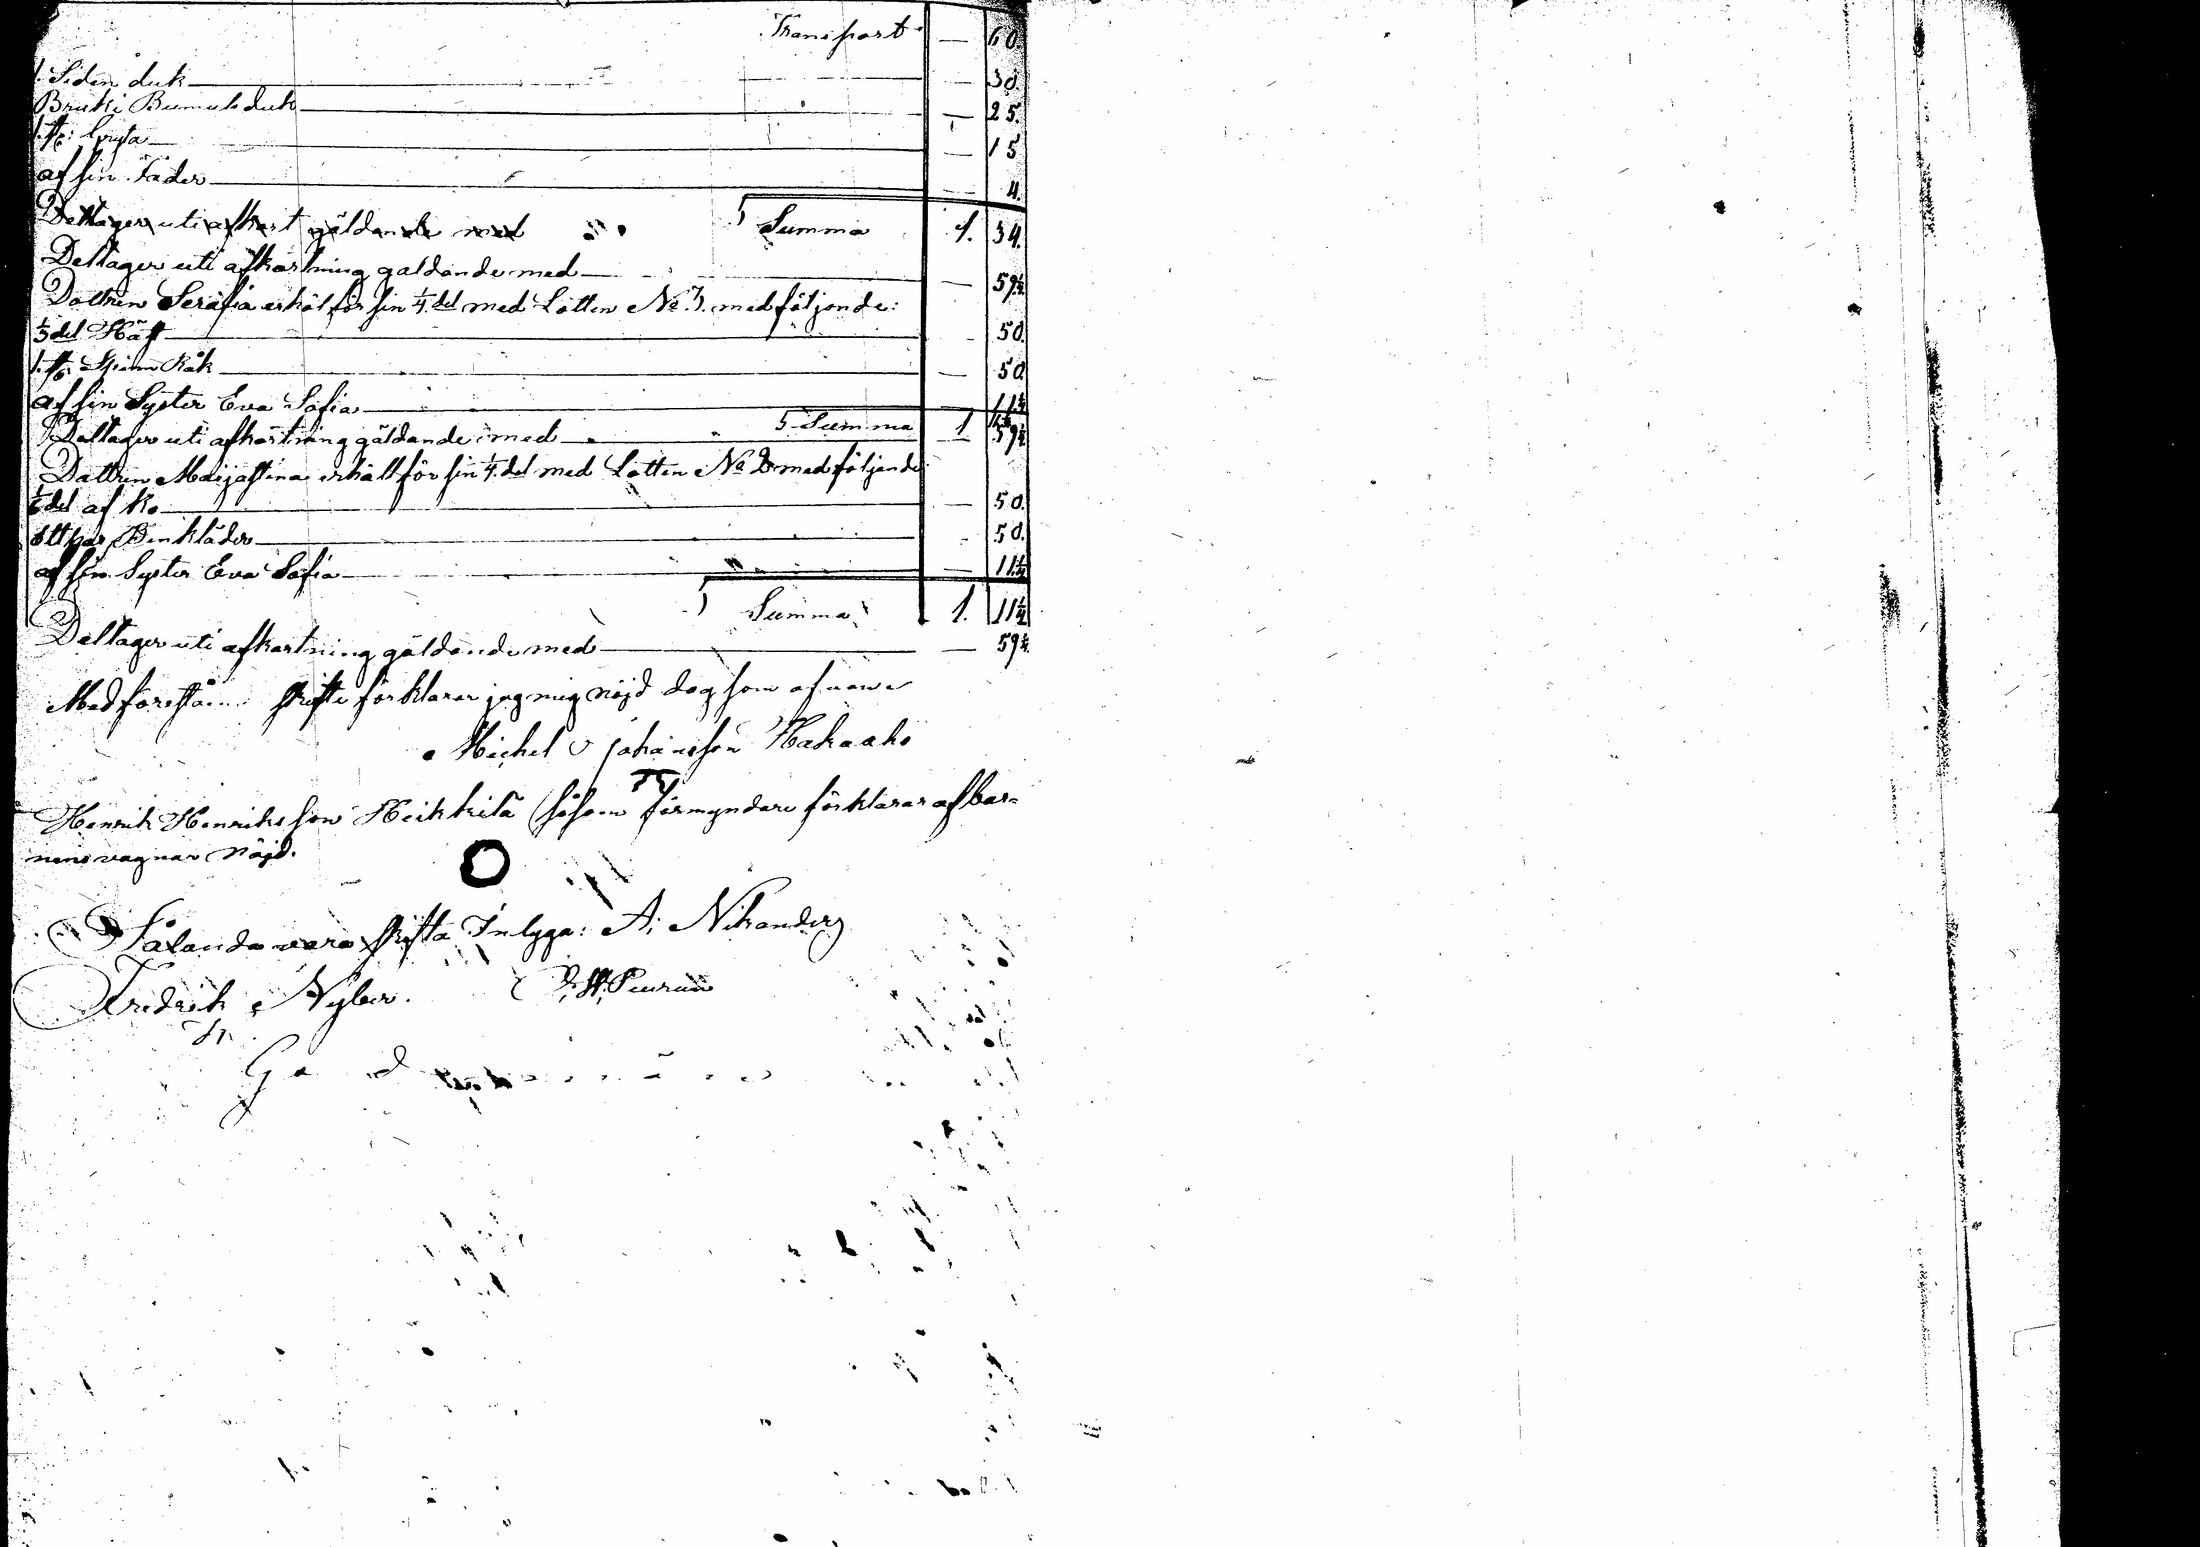 Transport — 60.
1. Siden duk — 30.
Bruki Bumuls duk — 25.
1. st: Gryta — 15
af sin Fader — 4.
Deltager uti afkort gäldande med Summa 1. 34.
Deltager uti afkortning gäldande med — 59 1/4
Dottren Serafia erhöl för sin 1/4 del med Lotten No 3. med följande:
1/3 del Häst — 50.
1. st: Spinn Råk — 50.
af sin Syster Eva Sofia — 11 1/4
Deltager uti afkortning gäldande med Summa 1 11 1/4 — 59 1/4
Dottren Maijastina erhåll för sin 1/4 del med Lotten No 2 med följande
1/6 del af Ko — 50.
ett par Benkläder — 50.
af sin Syster Eva Sofia — 11 1/4
Summa 1. 11 1/4
Deltager uti afkortning gäldande med — 59 1/4
Med förestå skifte förklarar jag mig nöjd dag som ofvan
Michel Johansson Hakaaho
Henrik Henriksson Heikkilä såsom förmyndare förklarar af bar=
nens vägnar nöjd.
Sålunda vara skifta Intyga: A. Nikander
Fredrik Nyber.